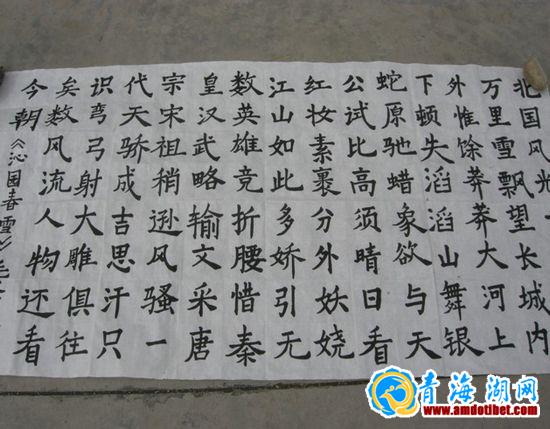 北国风光
万里雪飘望长城内
外惟馀莽莽大河上
下顿失滔滔山舞银
蛇原驰蜡象欲与天
公试比高须晴日看
红妆素裹分外妖娆
江山如此多娇引无
数英雄竞折腰惜秦
皇汉武略输文采唐
宗宋祖稍逊风骚一
代天骄成吉思汗只
识弯弓射大雕俱往
矣数风流人物还看
今朝《沁园春雪》毛
青海湖网
www.amdotibet.com